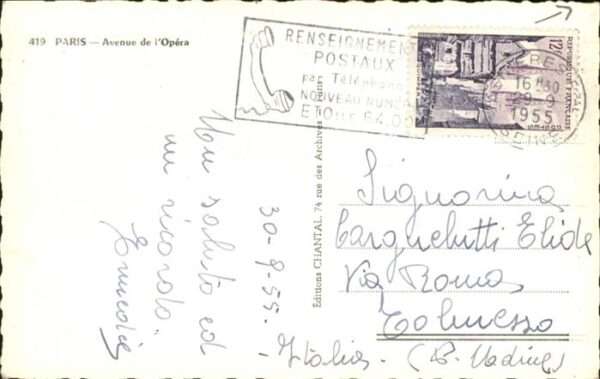 419 PARIS — Avenue de l'Opéra
RENSEIGNEMENT
POSTAUX
par Téléphone
NOUVEAU NUMÉ
ETOILE 64.00
12F
REPUBLIQUE FRANÇAISE
16 H30
29-9
1955
Editions CHANTAL, 74 rue des Archives
Un saluto ed
un ricordo.
30-9-55.
Signorina
Elide
Via Roma
Tolmezzo
Italia. (P. Udine)